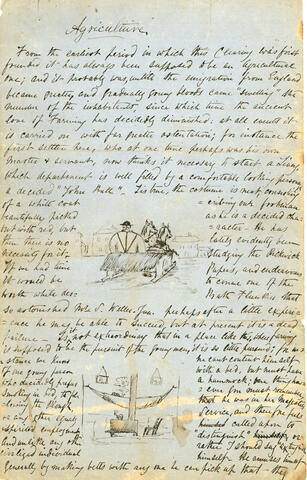 Agriculture.
From the earliest period in which this Clearing was first
founded it has always been supposed to be an Agricultural
one; and it probably was until the emigration from England
became greater and gradually young bloods came "swelling" the
number of the inhabitants, since which time the
love of Farming has decidedly diminished: at all events it
is carried on with far greater ostentation; for instance the
first settler here, who at one time perhaps was his own
Master & servant, now thinks it necessary to start a
which department is well filled by a comfortable looking person
a decided "John Bull". the costume is most
of a white coat
beautifully picked
out with red, but
then there is no
necessity for it.
If we had time
it would be
worth while des-
cribing our friend
as he is a decided cha-
racter. He has
lately evidently been
studying the Pickwick
Papers, and endeavors
to come one of the
Bath Flunkies that
so astonished Mr. S. Weller Jun. perhaps after a little exper-
ience he may be able to succeed, but at present it is a dead
failure — Is it not extraordinary that in a place like this, where farming
is supposed to be the pursuit if the young men
stance we know
of one young person
who decidedly prefers
smoking in bed, to
or any other equal
spirited employment
and unlike any other
civilized individual
he cant content himself
with a bed, but must have
a hammock; one thinking
that he was in her Majesty's
Service, and then
called upon to
distinguish or
rather I should say
himself. He amuses himself
generally by making bets with any one he can pick up that — they